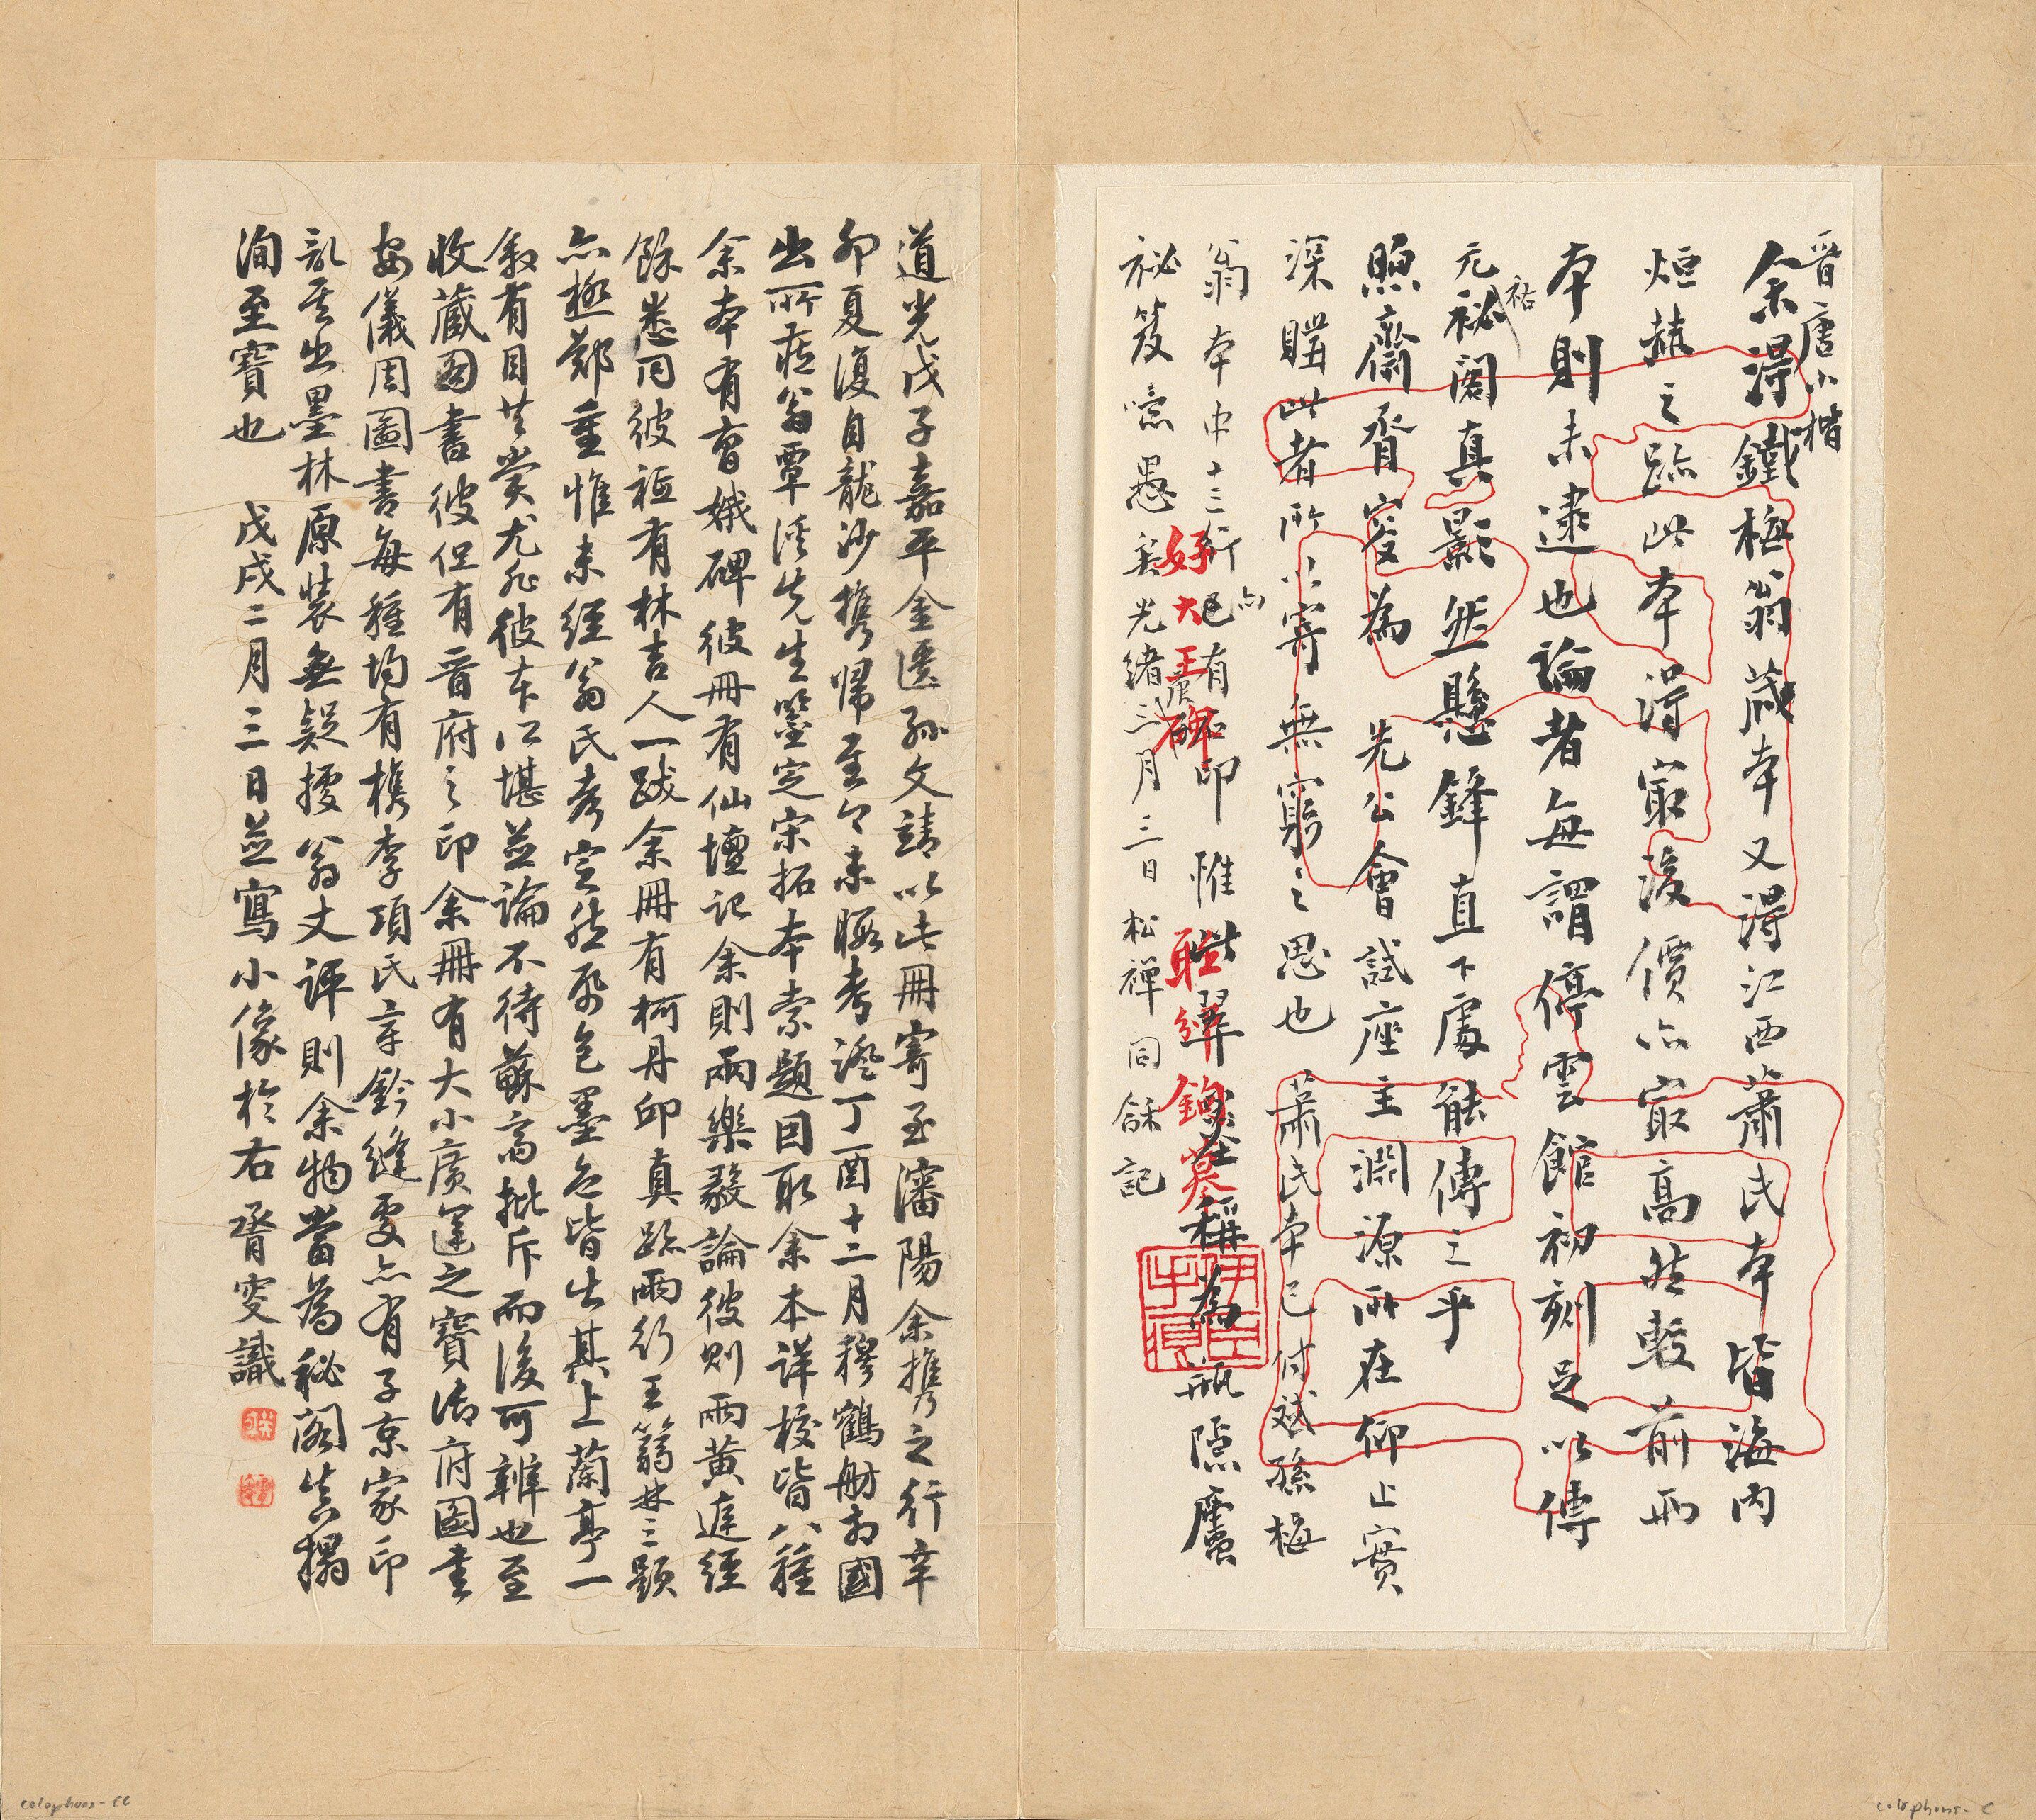 晉唐小楷
余得鐵梅翁藏本又得江西蕭氏本皆海内
烜赫之跡此本得最後價亦最高然較前兩
本則未逮也論者每謂停雲館初刻足以傳
元祐祕閣真影然懸鋒直下處能傳之乎
煦齋侪胥窔為 先公會試座主淵源所在仰止實
深購此者所以寄無窮之思也 蕭氏本已付斌孫梅
翁本中十三行亦有
印 惟 稱為瓶隱廬
祕笈噫愚矣光緒庚戌三月三日松禪同龢記
好大王碑
道光戊子嘉平金匱孫文靖以此冊寄至瀋陽余攜之行辛
卯夏復自龍沙攜歸至今未暇考證丁酉十二月穆鶴舫相國
出所藏翁覃溪先生鑒定宋拓本索題因取余本詳校皆八種
余本有曹娥碑彼冊有仙壇記余則兩樂毅論彼則兩黃庭經
餘悉同彼冊有林吉人一跋余冊有柯丹邱真跡兩行王篛林三題
亦極鄭重惟未經翁氏考定然紙色墨色皆出其上蘭亭一
敘有目共賞尤非彼本所堪並論不待蘇高批斥而後可辨也至
收藏圖書彼但有晉府之印余冊有大小廣運之寶御府圖書
安儀周圖書每種均有檇李項氏章鈐縫處亦有子京家印
記其出墨林原裝無疑據翁丈評則余物當為秘閣真搨
洵至寶也 戊戌二月三日並寫小像於右 胥窔識